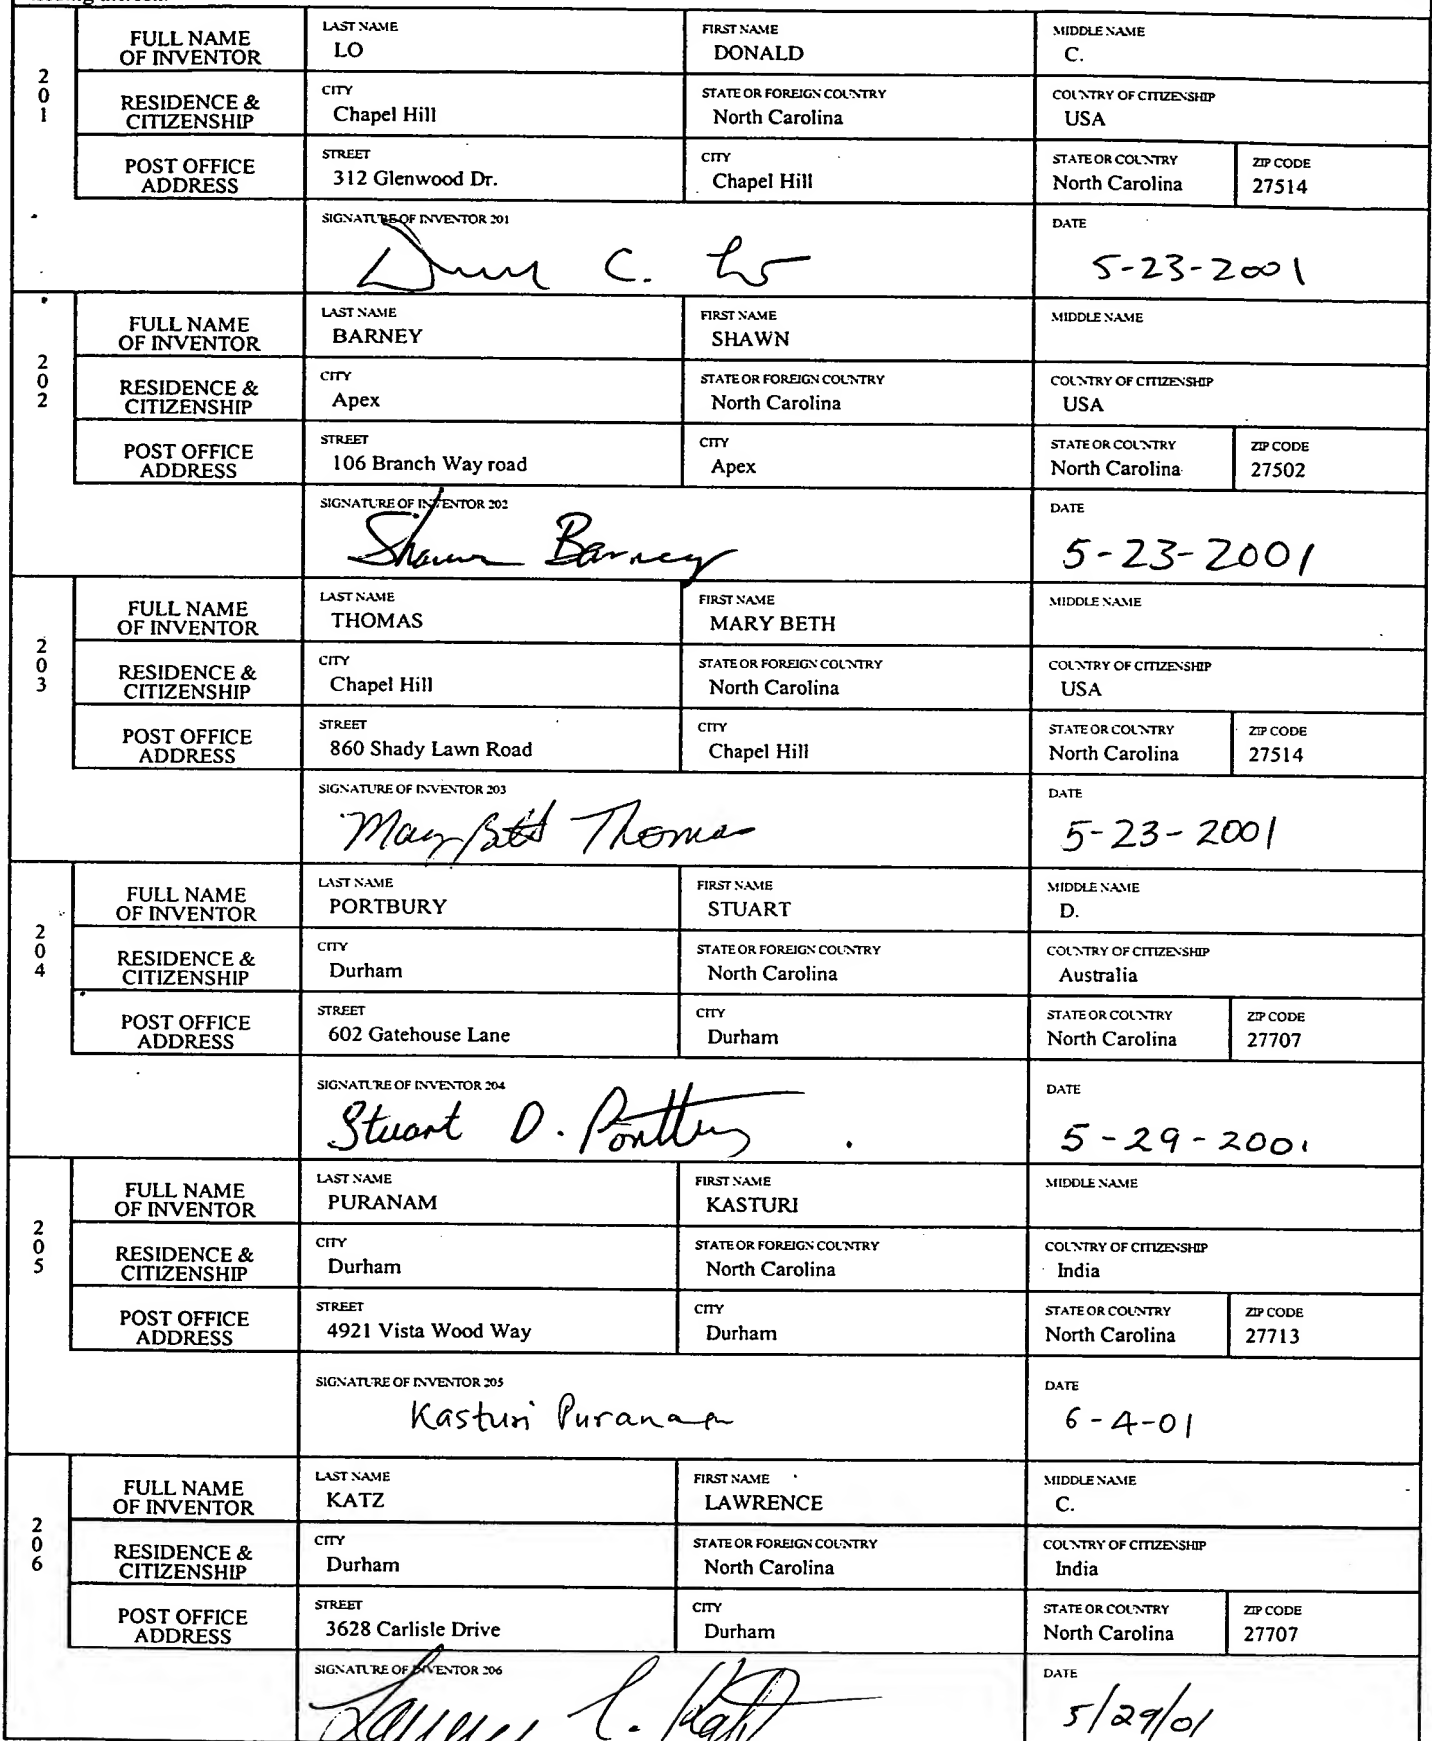 201
FULL NAME OF INVENTOR
LAST NAME
LO
FIRST NAME
DONALD
MIDDLE NAME
C.
RESIDENCE & CITIZENSHIP
CITY
Chapel Hill
STATE OR FOREIGN COUNTRY
North Carolina
COUNTRY OF CITIZENSHIP
USA
POST OFFICE ADDRESS
STREET
312 Glenwood Dr.
CITY
Chapel Hill
STATE OR COUNTRY
North Carolina
ZIP CODE
27514
SIGNATURE OF INVENTOR 201
C. Lo
DATE
5-23-2001
202
FULL NAME OF INVENTOR
LAST NAME
BARNEY
FIRST NAME
SHAWN
MIDDLE NAME
RESIDENCE & CITIZENSHIP
CITY
Apex
STATE OR FOREIGN COUNTRY
North Carolina
COUNTRY OF CITIZENSHIP
USA
POST OFFICE ADDRESS
STREET
106 Branch Way road
CITY
Apex
STATE OR COUNTRY
North Carolina
ZIP CODE
27502
SIGNATURE OF INVENTOR 202
Shawn Barney
DATE
5-23-2001
203
FULL NAME OF INVENTOR
LAST NAME
THOMAS
FIRST NAME
MARY BETH
MIDDLE NAME
RESIDENCE & CITIZENSHIP
CITY
Chapel Hill
STATE OR FOREIGN COUNTRY
North Carolina
COUNTRY OF CITIZENSHIP
USA
POST OFFICE ADDRESS
STREET
860 Shady Lawn Road
CITY
Chapel Hill
STATE OR COUNTRY
North Carolina
ZIP CODE
27514
SIGNATURE OF INVENTOR 203
Mary Beth Thomas
DATE
5-23-2001
204
FULL NAME OF INVENTOR
LAST NAME
PORTBURY
FIRST NAME
STUART
MIDDLE NAME
D.
RESIDENCE & CITIZENSHIP
CITY
Durham
STATE OR FOREIGN COUNTRY
North Carolina
COUNTRY OF CITIZENSHIP
Australia
POST OFFICE ADDRESS
STREET
602 Gatehouse Lane
CITY
Durham
STATE OR COUNTRY
North Carolina
ZIP CODE
27707
SIGNATURE OF INVENTOR 204
Stuart D. Portbury
DATE
5-29-2001
205
FULL NAME OF INVENTOR
LAST NAME
PURANAM
FIRST NAME
KASTURI
MIDDLE NAME
RESIDENCE & CITIZENSHIP
CITY
Durham
STATE OR FOREIGN COUNTRY
North Carolina
COUNTRY OF CITIZENSHIP
India
POST OFFICE ADDRESS
STREET
4921 Vista Wood Way
CITY
Durham
STATE OR COUNTRY
North Carolina
ZIP CODE
27713
SIGNATURE OF INVENTOR 205
Kasturi Puranam
DATE
6-4-01
206
FULL NAME OF INVENTOR
LAST NAME
KATZ
FIRST NAME
LAWRENCE
MIDDLE NAME
C.
RESIDENCE & CITIZENSHIP
CITY
Durham
STATE OR FOREIGN COUNTRY
North Carolina
COUNTRY OF CITIZENSHIP
India
POST OFFICE ADDRESS
STREET
3628 Carlisle Drive
CITY
Durham
STATE OR COUNTRY
North Carolina
ZIP CODE
27707
SIGNATURE OF INVENTOR 206
C. Katz
DATE
5/29/01